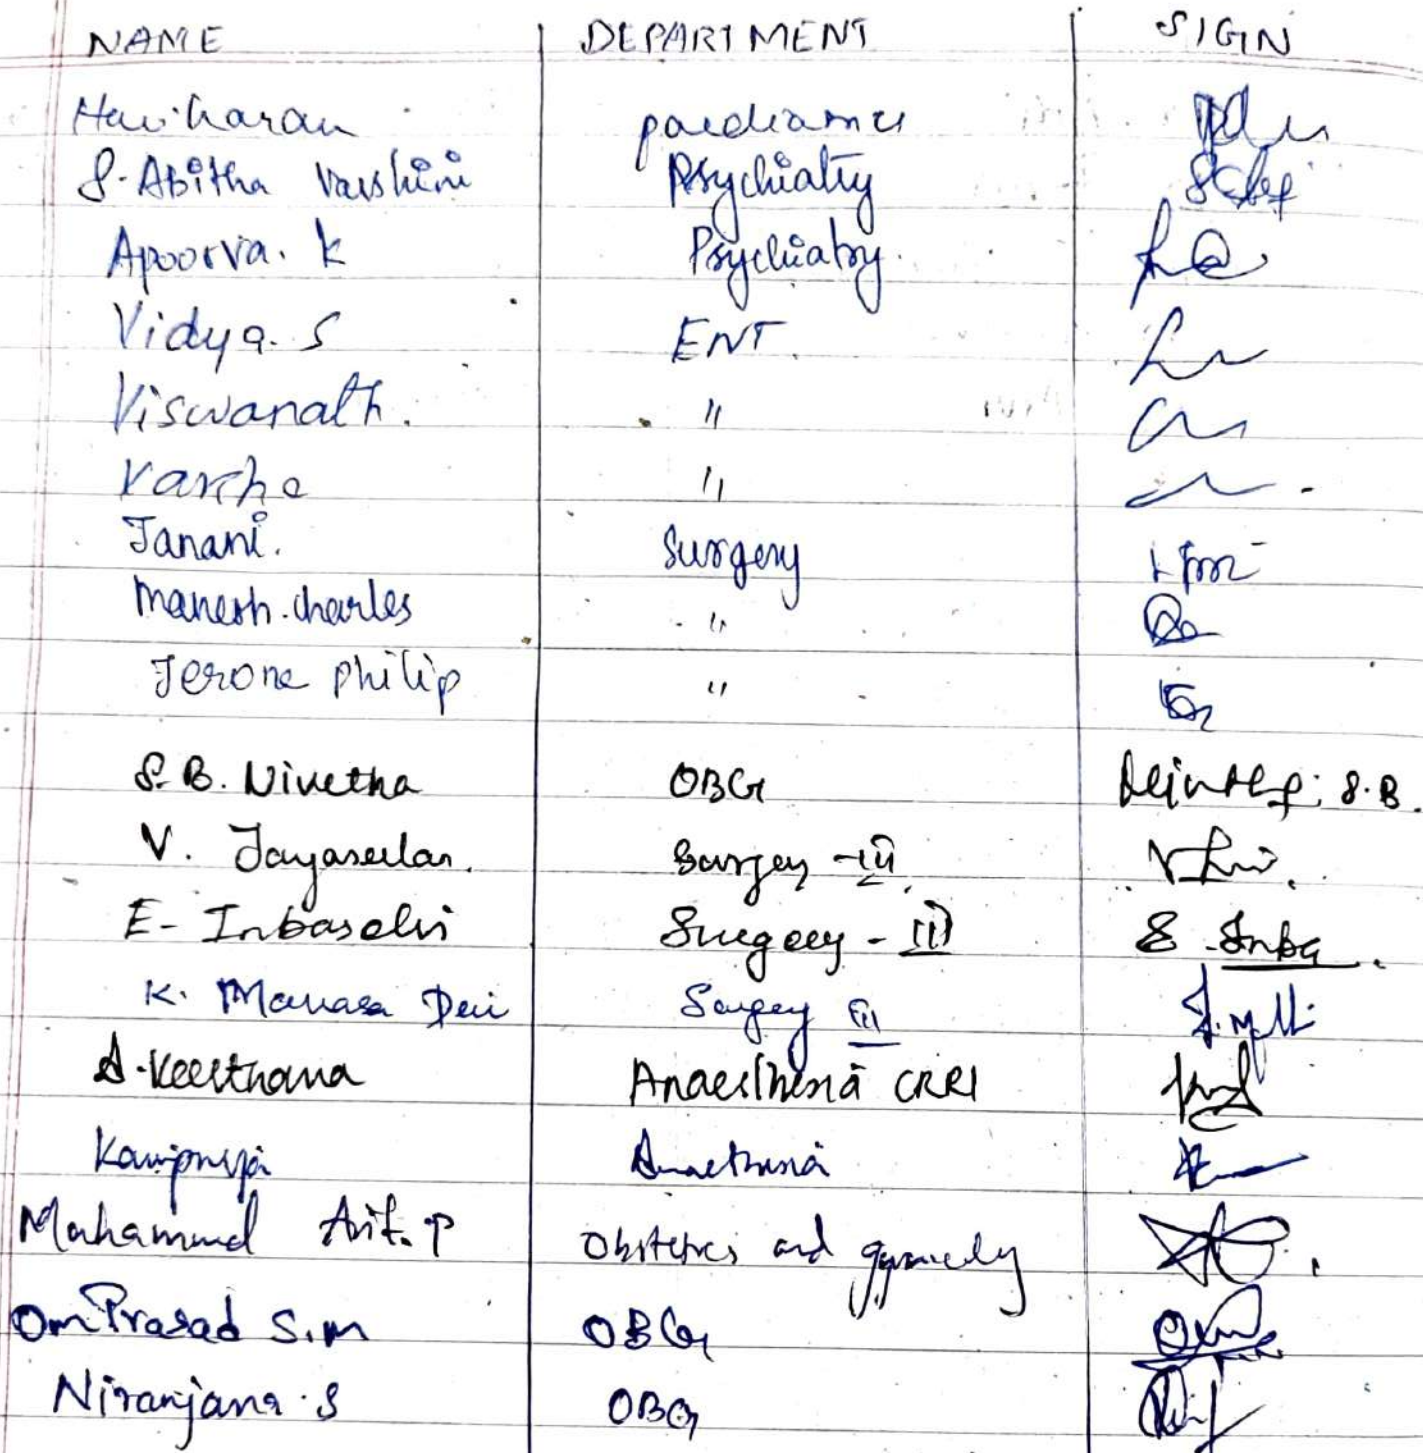 NAME DEPARTMENT SIGN
Hariharan paediatrics
S. Abitha Varshini Psychiatry
Apoorva. K Psychiatry.
Vidya. S ENT.
Viswanath. "
Varsha "
Janani. Surgery
Manesh. charles "
Jerone Philip "
S. B. Nivetha OBG S.B.
V. Jayaseelan. Surgery - III
E- Inbaselvi Surgery - III E. Inba.
K. Manasa Devi Surgery III
A. Keerthana Anaesthesia CRRI
Anaesthesia
Mohammed Arif. P Obstetrics and gynaecology
Om Prasad S.M OBG
Niranjana. S OBG